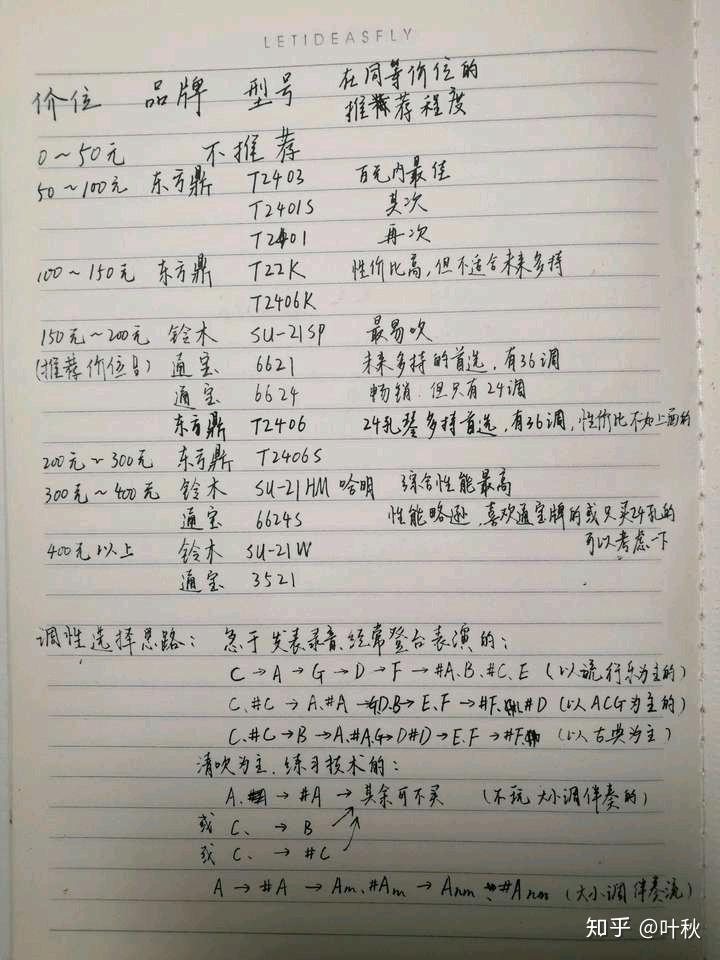 LETIDEASFLY
价位 品牌 型号 在同等价位的
推荐程度
0~50元 不推荐
50~100元 东方鼎 T2403 百元内最佳
T2401S 其次
T2401 再次
100~150元 东方鼎 T22K 性价比高,但不适合未来多持
T2406K
150元~200元 铃木 SU-21SP 最易吹
(推荐价位) 通宝 6621 未来多持的首选,有36调
通宝 6624 畅销.但只有24调
东方鼎 T2406 24孔琴多持首选,有36调,性价比不如上面的
200元~300元 东方鼎 T2406S
300元~400元 铃木 SU-21HM 哈明 综合性能最高
通宝 6624S 性能略逊,喜欢通宝牌的或只买24孔的
可以考虑一下
400元以上 铃木 SU-21W
通宝 3521
调性选择思路: 急于发表录音,经常登台表演的:
C→A→G→D→F→#A.B.#C.E (以流行乐为主的)
C.#C→A.#A→G.D.B→E.F→#F.#D (以ACG为主的)
C.#C→B→A.#A.G→D#D→E.F→#F (以古典为主)
清吹为主.练习技术的:
A.→#A→其余可不买 (不玩大小调伴奏的)
或 C.→B
或 C.→#C
A→#A→Am.#Am→Anm #Anm (大小调伴奏流)
知乎 @叶秋